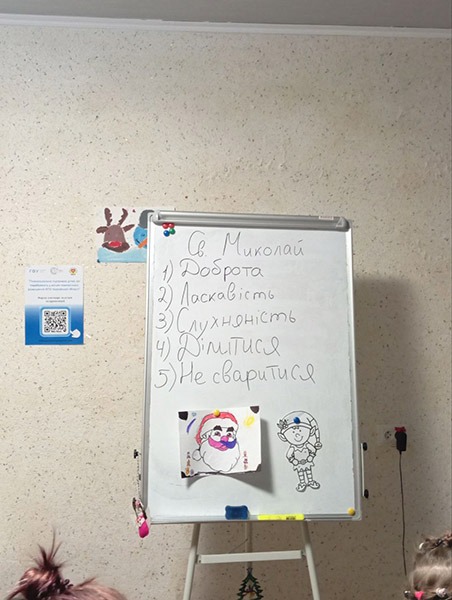 Св. Миколай
1) Доброта
2) Ласкавість
3) Слухняність
4) Ділитися
5) Не сваритися